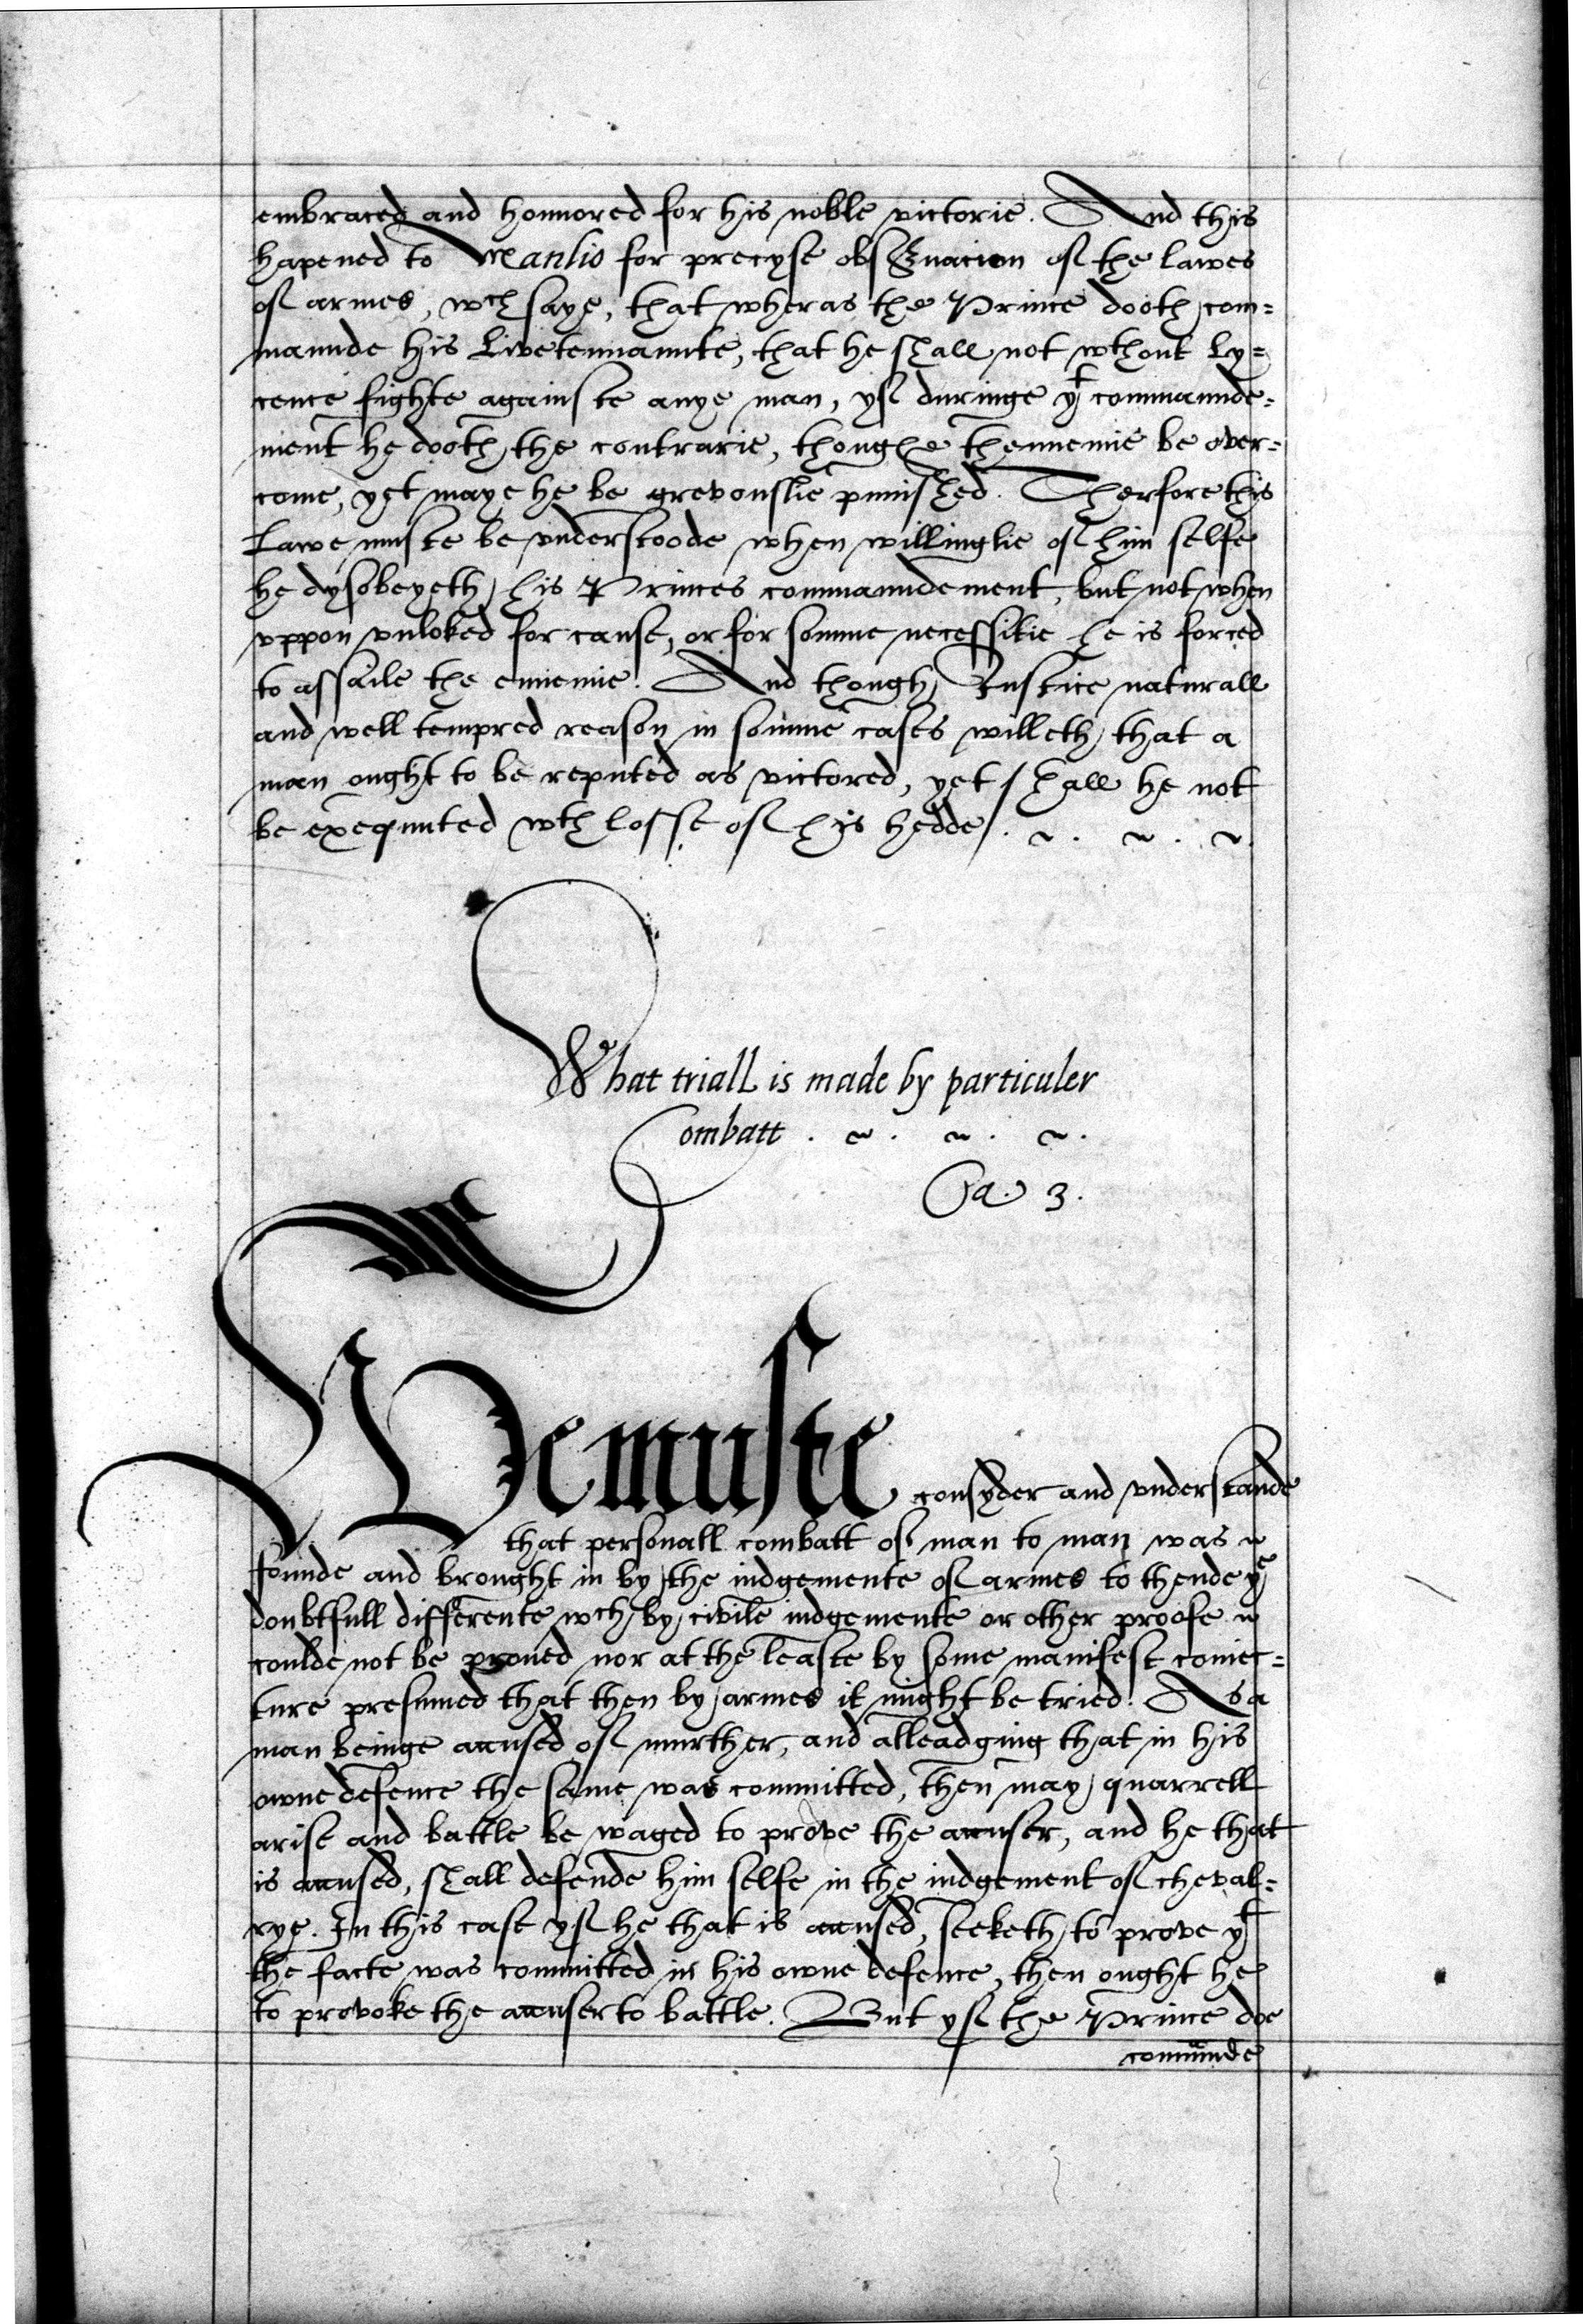 embraced and honnored for his noble victorie. And this
hapened to Manlio for precyse obseruacion of the lawes
of armes, wch saye, that wheras the Prince dooth com=
maunde his Livetennaunte, that he shall not wthout Ly=
cence fighte againste anye man, yf duringe yt commaunde=
ment he dooth the contrarie, thoughe thennemie be over=
come, yet maye he be grevouslie punished. Therfore this
Lawe muste be understoode when willinglie of him selfe
he dysobeyeth his Princes commaundement, but not when
uppon unloked for cause, or for somme necessitie he is forced
to assaile the ennemie. And though Justice naturall
and well tempred reason in somme cases willeth that a
man ought to be reputed as victored, yet shall he not
be exequuted wth losse of his hedde.
What triall is made by particuler
Combatt.
Ca. 3.
We muste consyder and understande
that personall combatt of man to man was
founde and brought in by the iudgemente of armes to thende ye
doubtfull differente wch by civile iudgemente or other proofe
coulde not be proued nor at the leaste by some manifest coniec=
ture presumed that then by armes it might be tried. As a
man beinge accused of murther, and alleadging that in his
owne defence the same was committed, then may quarrell
arise and battle be waged to prove the accuser, and he that
is accused, shall defende him selfe in the iudgement of cheval=
rye. In this case yf he that is accused, seeketh to prove yt
the facte was committed in his owne defence, then ought he
to provoke the accuser to battle. But yf the Prince doe
comaunde